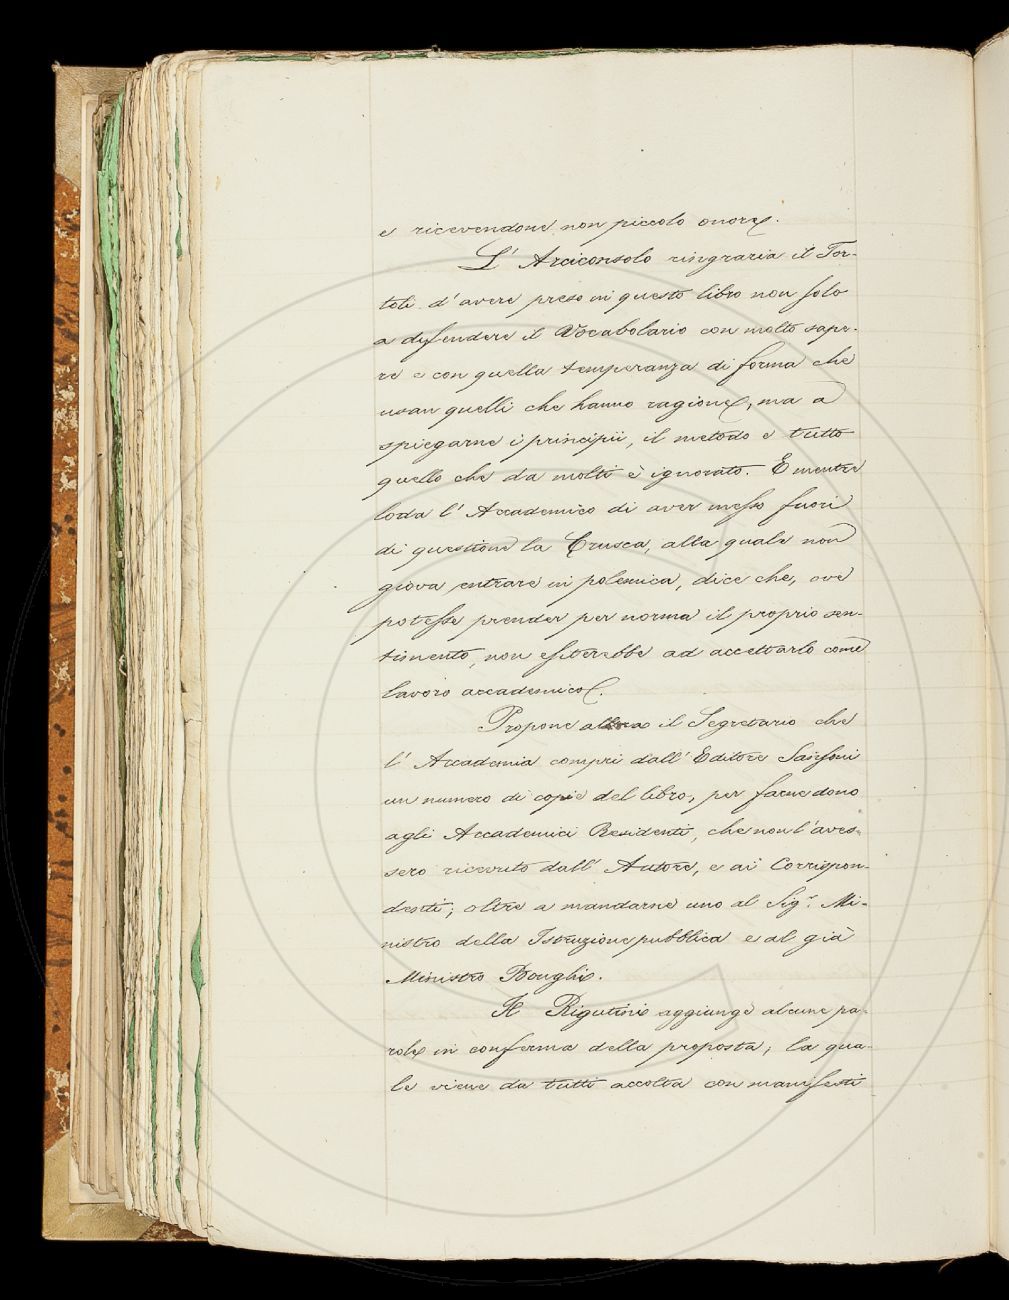 e ricevendone non piccolo onore.
L' Arciconsolo ringrazia il Tor-
toli d' avere preso in questo libro non solo
a difendere il Vocabolario con molto sape-
re e con quella temperanza di forma che
usan quelli che hanno ragione, ma a
spiegarne i principii, il metodo e tutto
quello che da molti è ignorato. E mentre
loda l' Accademico di aver messo fuori
di questione la Crusca, alla quale non
giova entrare in polemica, dice che, ove
potesse prender per norma il proprio sen-
timento, non esiterebbe ad accettarlo come
lavoro accademico.
Propone allora il Segretario che
l' Accademia compri dall' Editore Sansoni
un numero di copie del libro, per farne dono
agli Accademici Residenti, che non l' aves-
sero ricevuto dall' Autore, e ai Corrispon-
denti; oltre a mandarne uno al Sig.r Mi-
nistro della Istruzione pubblica e al già
Ministro Bonghi.
Il Rigutini aggiunge alcune pa-
role in conferma della proposta; la qua-
le viene da tutti accolta con manifesti